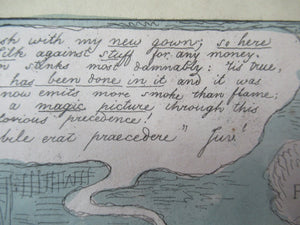 sh with my new gown; so here
silk against stuff for any money.
n stanks most damnably; 'tis true,
has been done in it and it was
now emits more smoke than flame;
a magic picture through this
lorious precedence!
bile erat praecedere" Juv!